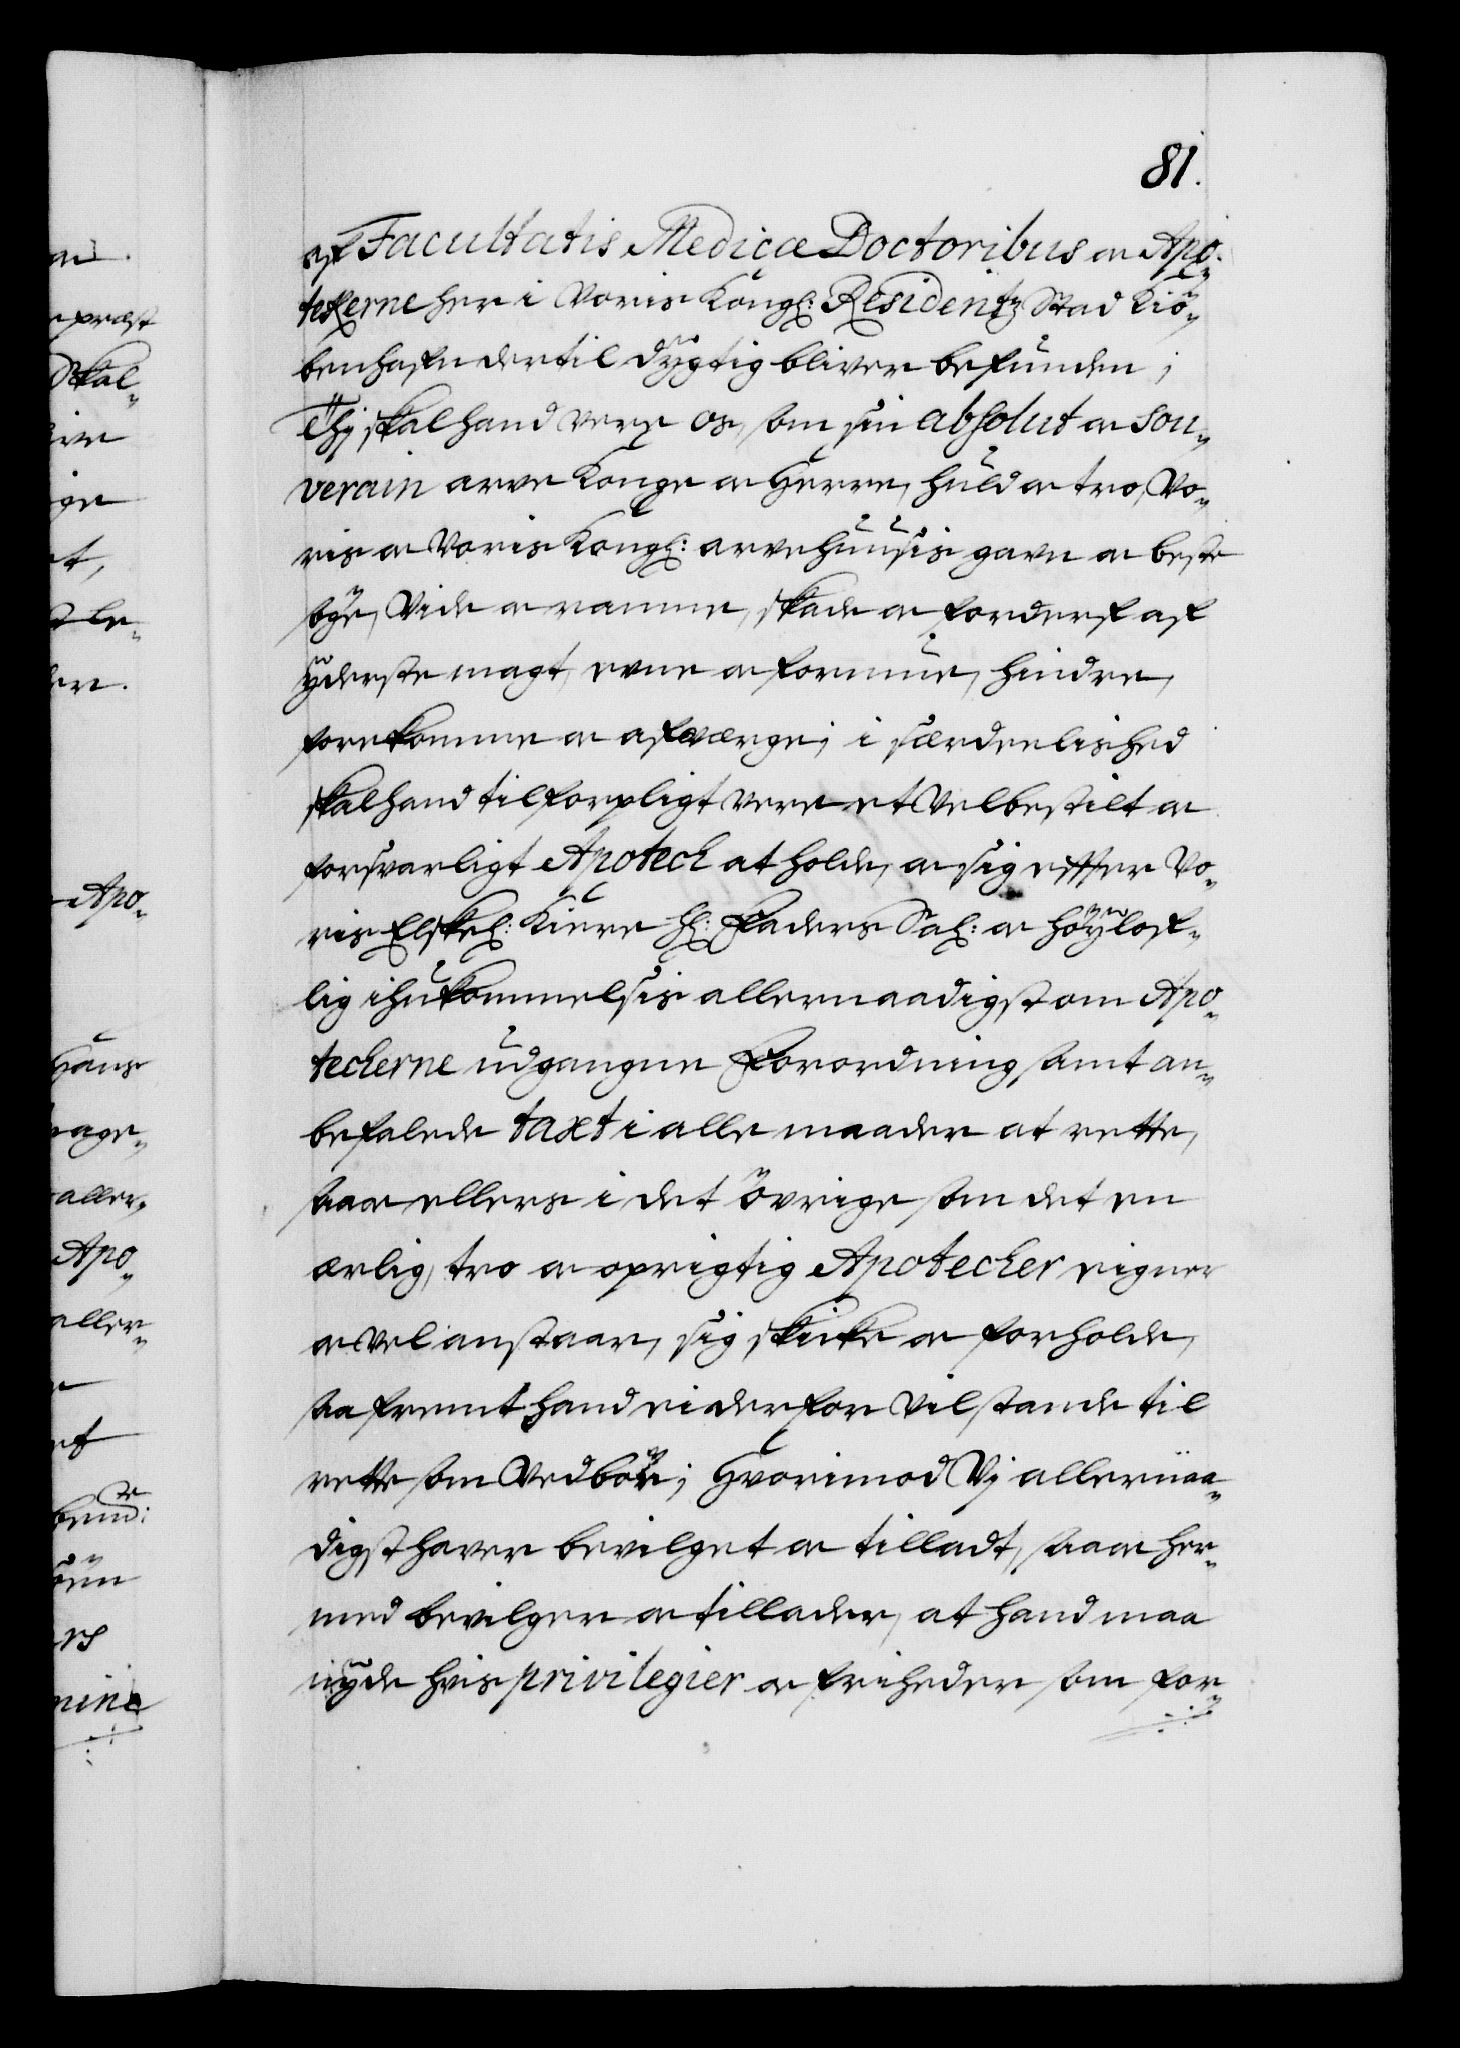 81.
af Facultatis Medicæ Doctoribus og Apo-
tekerne her i Voris Kongl: Residentz Stad Kiö-
benhafn dertil dygtig bliver befunden;
Thj skal hand vere os, som sin absolut og sou-
verain arve Konge og Herre, huld og tro, Vo-
ris og Voris Kongl: arvehuusis gavn og beste
söge, Vide og ramme, skade og forderf af
yderste magt, evne og formue, hindre,
forekomme og afværge; i særdeelished
skal hand tilforpligt vere et Velbestilt og
forsvarligt Apotech at holde, og sig effter Vo-
ris Elskel: Kiere Hr: Faders Sal: og höylof-
lig ihukommelsis allernaadigst om Apo-
techerne udgangne Forordning samt an-
befalede taxt i alle maader at rette,
saa og ellers i det övrige som det en
ærlig, tro og oprigtig Apotecher eigner
og Vel anstaar, sig skicke og forholde,
saa fremt hand ej derfor Vil stande til
rette som Vedbör; Hvorimod Vj allernaa-
digst haver bevilget og tilladt, saa og her-
med bevilger og tillader, at hand maa
nyde hvis privilegier og friheder som for-
præst
Skal-
ige
et,
Apo-
Hans
aller-
Apo-
aller-